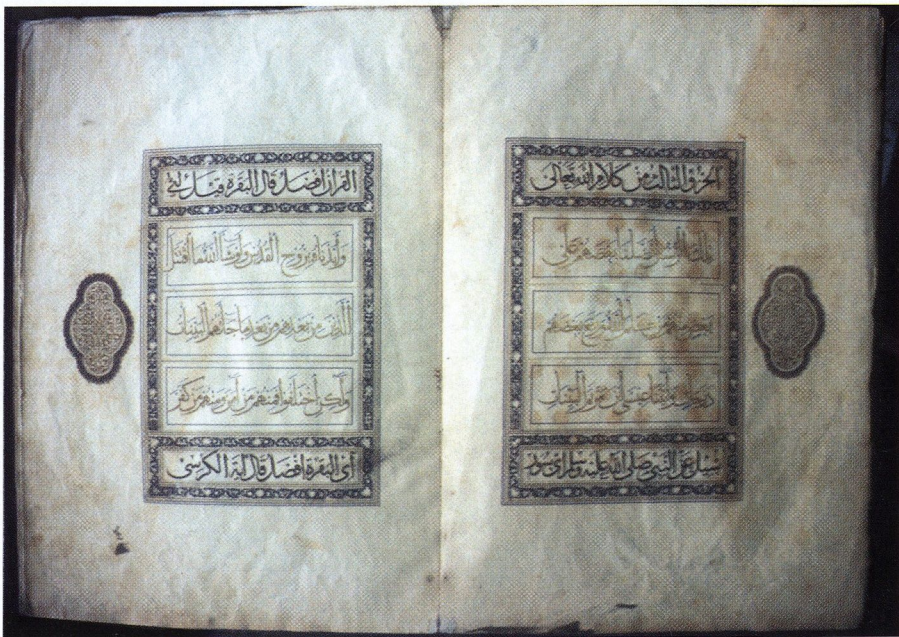 الجزؤ الثالث من كلام الله تعالى
تلك الرسل فضلنا بعضهم على
بعض منهم من كلم الله ورفع بعضهم
درجات وآتينا عيسى ابن مريم البينات
سئل عن النبي صلى الله عليه وسلم اى سور
القران افضل قال البقرة قيل
وأيدناه بروح القدس ولو شاء الله ما اقتتل
الذين من بعدهم من بعد ما جاءتهم البينات
ولكن اختلفوا فمنهم من آمن ومنهم من كفر
اى البقرة افضل قال آية الكرسى